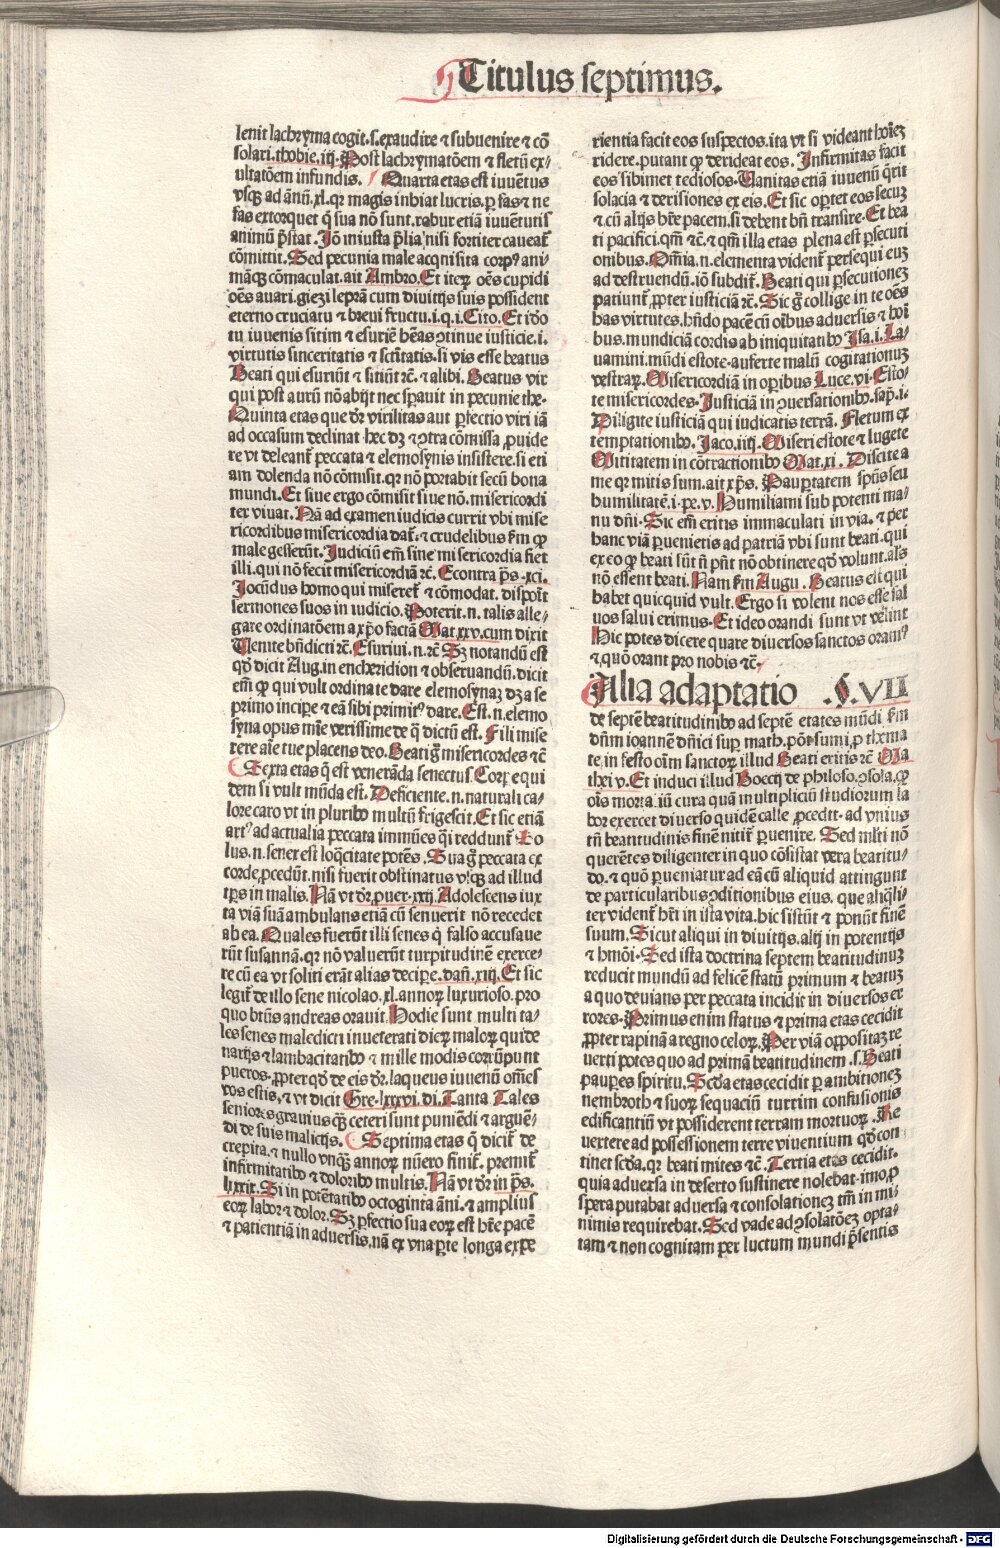 Titulus septimus.
lenit lachryma cogit.s.exaudire ⁊ subuenire ⁊ cō
solari.thobie.iij.Post lachrymatōem ⁊ fletū ex⸗
ultatōem infundis. Quarta etas est iuuētus
vsq̧ ad ānū.xl.qr magis inhiat lucris.p̲ fas ⁊ ne
fas extorquet q̄ sua nō sunt.rabur etiā iuuētutis
animū p̄stat.Iō miusta p̄lia nisi fortiter caueat̄
cōmittit.Sed pecunia male acq̇sita corpꝰ ani⸗
māq̧ cōmaculat.ait Ambro.Et iteꝝ oēs cupidi
oēs auari.giezi leprā cum diuitijs suis possident
eterno cruciatu ⁊ breui fructu.i.q.i.Cito.Et iō
tu iuuenis sitim ⁊ esuriē hēas ꝯtinue iusticie.i.
virtutis sinceritatis ⁊ sctitatis.si vis esse beatus
Beati qui esuriūt ⁊ sitiūt ⁊c̄.⁊ alibi.Beatus vir
qui post aurū nō abijt nec sp̲auit in pecunie the.
Quinta etas que dr̄ virilitas aut p̲fectio viri iā
ad occasum declinat hec dꝫ ⁊ ꝯtra cōmissa p̲uide
re vt deleant̄ peccata ⁊ elemosynis insistere.si eti
am dolenda nō cōmisit.qr nō portabit secū bona
mundi.Et siue ergo cōmisit siue nō.misericordi
ter viuat.Nā ad examen iudicis currit vbi mise
ricordibus misericordia dat̄.⁊ crudelibus ẜm ꝙ
male gesserūt.Iudiciū em̄ sine misericordia fiet
illi.qui nō fecit misericordiā ⁊c̄.Econtra p̄s.xci.
Jocūdus homo qui miseret̄ ⁊ cōmodat.disponit
sermones suos in iudicio.Poterit.n.talis alle⸗
gare ordinatōem a xp̄o factā Mat.xxv.cum dixit
Uenite bn̄dicti ⁊c̄.Esuriui.n.⁊c̄ Sꝫ notandū est
qd̄ dicit Aug.in encheridion ⁊ obseruandū.dicit
em̄ ꝙ qui vult ordinate dare elemosynaꝫ dꝫ a se
primo incipe ⁊ eā sibi primitꝰ dare.Est.n.elemo
syna opus mīe verissime de q̄ dictū est.Fili mise
rere aīe tue placens deo.Beati g̊ misericordes ⁊c̄
Sexta etas q̄ est venerāda senectus Corpe qui
dem si vult mūda est.Deficiente.n.naturali ca⸗
lore caro vt in pluribꝰ multū frigescit.Et sic etiā
artꝰ ad actualia peccata immūes q̇si reddunt̄ So
lus.n.senex est loq̄citate potēs.Sua g̊ peccata ex
corde.p̲cedūt.nisi fuerit obstinatus vsq̧ ad illud
tp̄s in malis.Nā vt dr̄.puer.xxij.Adolescens iux
ta viā suā ambulans etiā cū senuerit nō recedet
ab ea.Quales fuerūt illi senes q̇ falso accusaue
rūt susannā.qr nō valuerūt turpitudinē exerce⸗
re cū ea vt soliti erāt alias decipe.dan̄.xiij.Et sic
legit̄ de illo sene nicolao.xl.annoꝝ luxurioso.pro
quo btūs andreas orauit.Hodie sunt multi ta⸗
les senes maledicti inueterati dieꝝ maloꝝ qui de
narijs ⁊ lambacitatibꝰ ⁊ mille modis corrūpunt
pueros.ꝓpter qd̄ de eis dr̄.laqueus iuuenū om̄es
vos estis,⁊ vt dicit Gre.lxxxvi.di.Tanta Tales
seniores grauius q̄ꝫ ceteri sunt puniēdi ⁊ arguē⸗
di de suis malicijs. Septima etas q̄ dicit̄ de
crepita.⁊ nullo vnq̄ꝫ annoꝝ nūero finit̄.premit̄
infirmitatibꝰ ⁊ doloribꝰ multis.Nā vt dr̄ in p̄s.
lxxxit.Si in potētatibꝰ octoginta āni.⁊ amplius
eoꝝ labor ⁊ dolor.Sꝫ p̲fectio sua eoꝝ est hr̄e pacē
⁊ patientiā in aduersis.nā ex vna pte longa expe
rientia facit eos suspectos.ita vt si videant hoīeꝫ
ridere.putant ꝙ derideat eos.Infirmitas facit
eos sibimet tediosos.Uanitas etiā iuuenū q̄rit
solacia ⁊ derisiones ex eis.Et sic oportet eos secuꝫ
⁊ cū alijs hr̄e pacem.si debent bn̄ transire.Et bea
ti pacifici.qm̄ ⁊c̄.⁊ qm̄ illa etas plena est p̲secuti
onibus.Om̄ia.n.elementa vident̄ persequi euꝫ
ad destruendū.iō subdit̄.Beati qui p̲secutioneꝫ
patiunt̄ ꝓpter iusticiā ⁊c̄.Sic g̊ collige in te oēs
has virtutes.hn̄do pacē cū oībus aduersis ⁊ hoī
bus.mundiciā cordis ab iniquitatibꝰ Isa.i.La⸗
uamini.mūdi estote.auferte malū cogitationuꝫ
vestraꝝ.Misericordiā in oꝑibus Luce.vi.Esto⸗
te misericordes.Iusticiā in ꝯuersationibꝰ.sap̄.i.
Diligite iusticiā qui iudicatis terrā.Fletum ex
temptationibꝰ.Iaco.iiij.Miseri estote ⁊ lugete
Mititatem in cōtractionibꝰ Mat.xi.Discite a
me qr mitis sum.ait xp̄s.Paup̲tatem sp̄ūs seu
humilitatē.i.pe.v.Humiliami sub potenti ma⸗
nu dn̄i.Sic em̄ eritis immaculati in via.⁊ per
hanc viā p̲uenietis ad patriā vbi sunt beati.qui
ex eo ꝙ beati sūt n̄ pn̄t nō obtinere qd̄ volunt.als̄
nō essent beati.Nam ẜm Augu.Beatus est qui
habet quicquid vult.Ergo si volent nos esse sal
uos salui erimus.Et ideo orandi sunt vt velint
Hic potes dicere quare diuersos sanctos oramꝰ
⁊ quō orant pro nobis ⁊c̄.
Alia adaptatio .§.VII
de septē beatitudinibꝰ ad septē etates mūdi ẜm
dn̄m ioannē dn̄ici suꝑ math.pōt sumi,ꝓ thema
te,in festo oīm sanctoꝝ illud Beati eritis ⁊c̄ Ma
thei v.Et induci illud Boecij de philoso.ꝯsola.ꝙ
oīs mortaliū cura quā multipliciū studiorum la
bor exercet diuerso quidē calle ꝓcedit.ad vnius
tn̄ beatitudinis finē nitit̄ p̲uenire.Sed mlti nō
querētes diligenter in quo cōsistat vera beatitu⸗
do.⁊ quō p̲ueniatur ad eā cū aliquid attingunt
de particularibus ꝯditionibus eius.que aliq̄li⸗
ter vident̄ hr̄i in ista vita.hic sistūt ⁊ ponūt finē
suum.Sicut aliqui in diuitijs.alij in potentijs
⁊ hmōi.Sed ista doctrina septem beatitudinuꝫ
reducit mundū ad felicē statū primum ⁊ beatuꝫ
a quo deuians per peccata incidit in diuersos er
rores.Primus enim status ⁊ prima etas cecidit
ꝓpter rapinā a regno celoꝝ.Per viā oppositaꝫ re
uerti potes quo ad primā beatitudinem.s.Beati
paupes spiritu.Scda etas cecidit p̲ ambitioneꝫ
nembroth ⁊ suoꝝ sequaciū turrim confusionis
edificantiū vt possiderent terram mortuoꝝ.Re
uertere ad possessionem terre viuentium qd̄ con
tinet scda.qr beati mites ⁊c̄.Tertia etas cecidit.
quia aduersa in deserto sustinere nolebat.imo,ꝓ
spera putabat aduersa ⁊ consolationeꝫ tm̄ in mi⸗
nimis requirebat.Sed vade ad ꝯsolatōeꝫ opta⸗
tam ⁊ non cognitam per luctum mundi p̄sentis
Digitalisierung gefördert durch die Deutsche Forschungsgemeinschaft - DFG